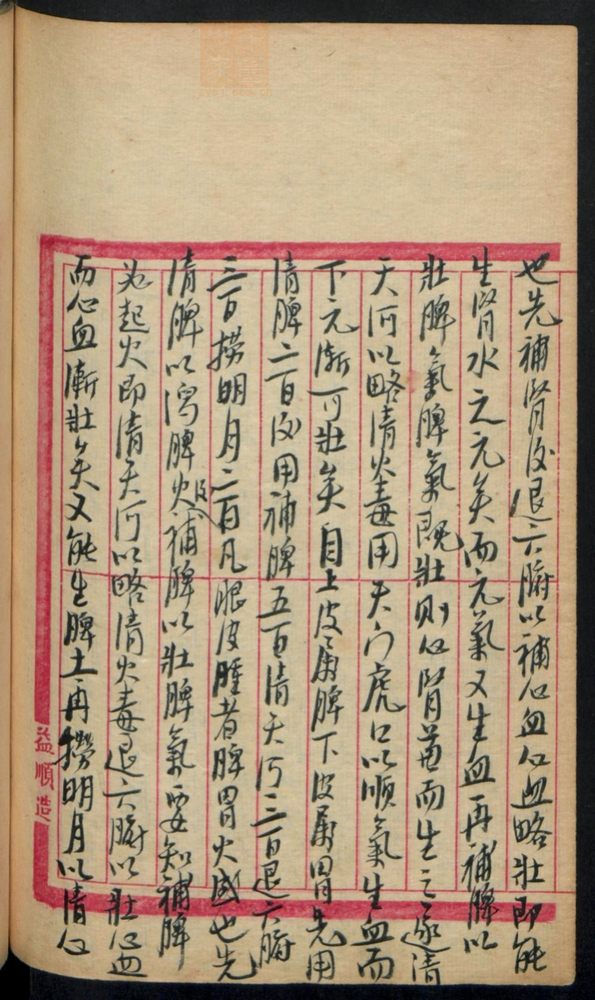 也先補腎後退六腑以補心血心血略壯即能
生腎水之元矣而元氣又生血再補脾以
壯脾氣脾氣既壯則心腎益而生之遂清
天河以略清火毒用天门虎口以順氣生血而
下元漸可壯矣目上皮属脾下皮属胃先用
清脾二百後用補脾五百清天河三百退六腑
三百撈明月二百凡眼皮腫者脾胃火盛也先
清脾以瀉脾火後補脾以壯脾氣要知補脾
必起火即清天河以略清火毒退六腑以壯心血
而心血漸壯矣又能生脾土再撈明月以清心
益順造